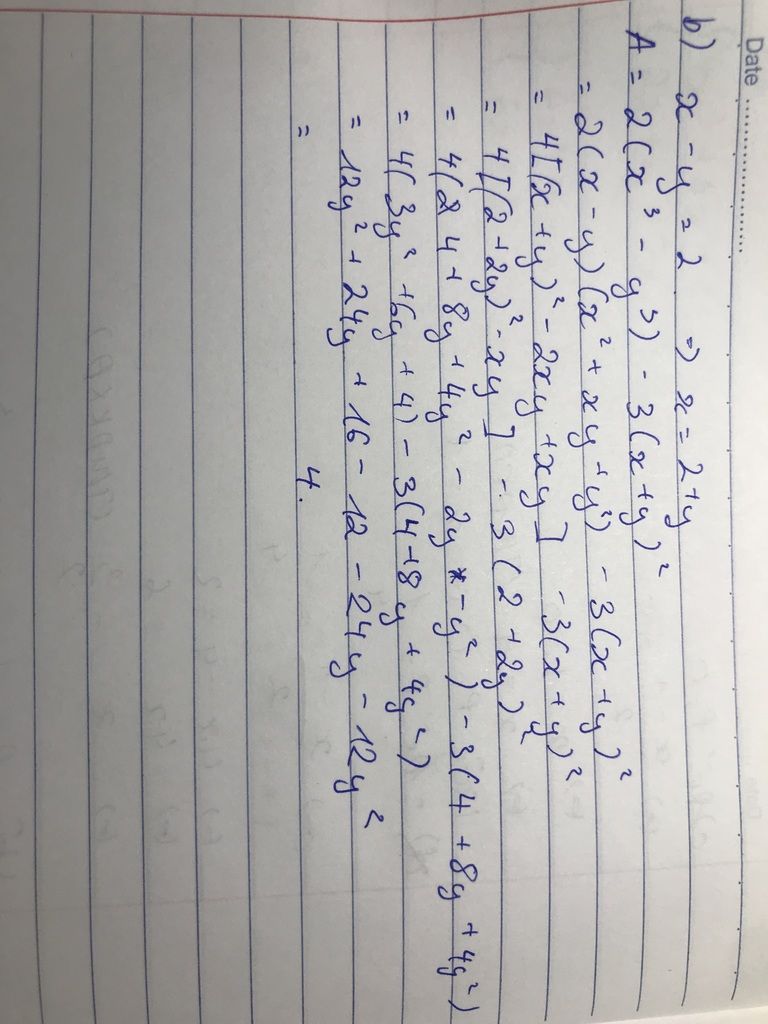 Date ....................
b) x - y = 2 ⇒ x = 2+y
A = 2(x³ - y³) - 3(x+y)²
= 2(x - y)(x² + xy + y²) - 3(x+y)²
= 4[(x+y)² - 2xy + xy] - 3(x+y)²
= 4[(2+2y)² - xy] - 3(2+2y)²
= 4(4 + 8y + 4y² - 2y - y²) - 3(4 + 8y + 4y²)
= 4(3y² + 6y + 4) - 3(4+8y + 4y²)
= 12y² + 24y + 16 - 12 - 24y - 12y²
= 4.